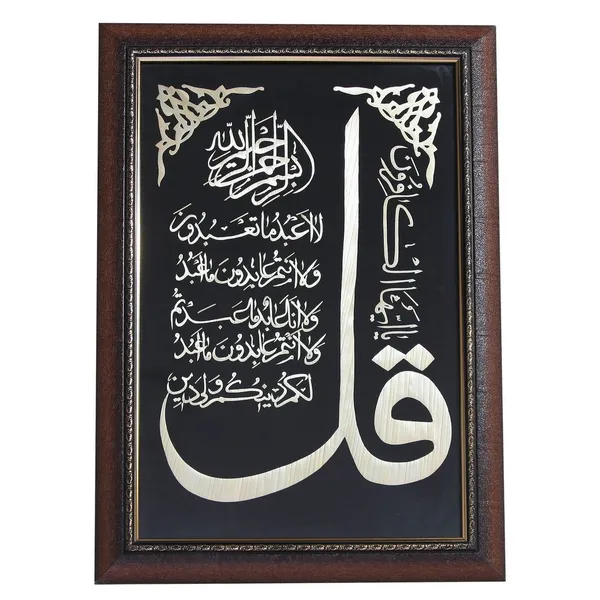 بسم الله الرحمن الرحيم
قل
يا أيها الكافرون
لا أعبد ما تعبدون
ولا أنتم عابدون ما أعبد
ولا أنا عابد ما عبدتم
ولا أنتم عابدون ما أعبد
لكم دينكم ولي دين